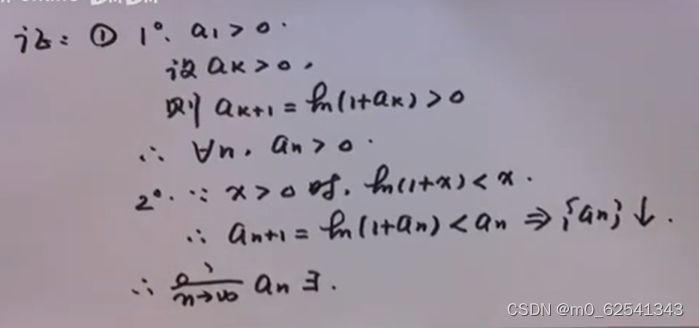 证: ① 1°. a₁>0.
设 aₖ>0,
则 aₖ₊₁=ln(1+aₖ)>0
∴ ∀n, aₙ>0.
2°. ∵ x>0时, ln(1+x)<x.
∴ aₙ₊₁=ln(1+aₙ)<aₙ ⇒ {aₙ}↓.
∴ lim n→∞ aₙ∃.
CSDN @m0_62541343